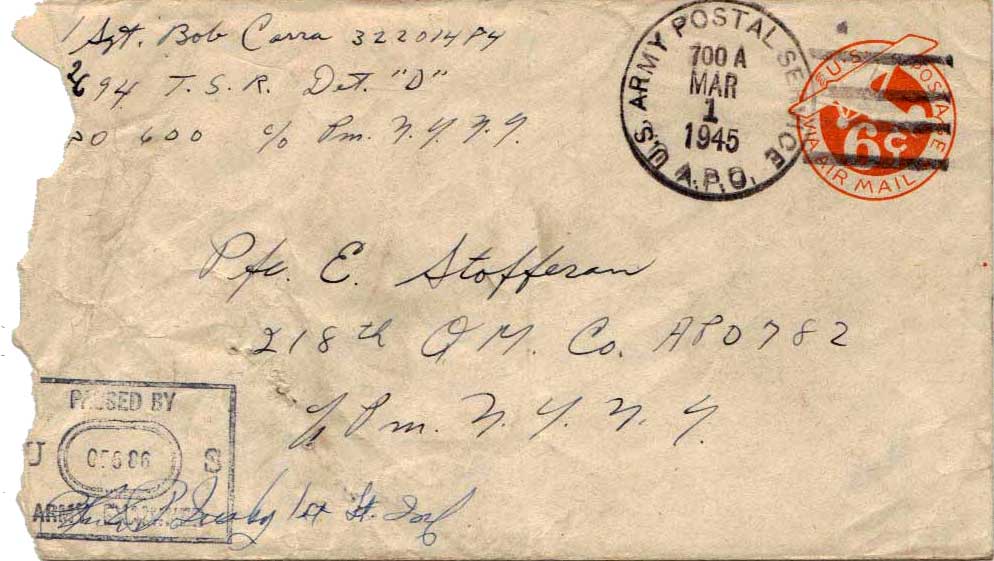 Sgt. Bob Carra 32201474
94 T. S. R. Det. "D"
600 c/o Pm. N.Y. N.Y.
U.S. ARMY POSTAL SERVICE
700 A
MAR
1
1945
A.P.O.
U.S. POSTAGE
6¢
VIA AIR MAIL
Pfc. E. Stofferan
218th Q M. Co. APO 782
c/o Pm. N. Y. N. Y.
PASSED BY
U S
ARMY EXAMINER
1st Lt. Inf